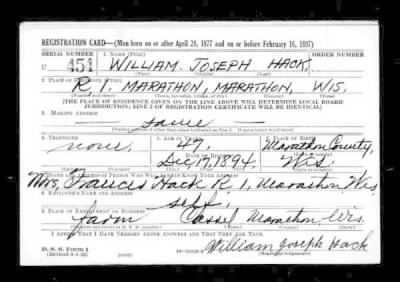 REGISTRATION CARD—(Men born on or after April 28, 1877 and on or before February 16, 1897)
SERIAL NUMBER 1. NAME (Print) ORDER NUMBER
U 451 WILLIAM JOSEPH HACK
(First) (Middle) (Last)
2. PLACE OF RESIDENCE (Print)
R 1. MARATHON, MARATHON, WIS.
(Number and street) (Town, township, village, or city) (County) (State)
[THE PLACE OF RESIDENCE GIVEN ON THE LINE ABOVE WILL DETERMINE LOCAL BOARD
JURISDICTION; LINE 2 OF REGISTRATION CERTIFICATE WILL BE IDENTICAL]
3. MAILING ADDRESS
Same
[Mailing address if other than place indicated on line 2. If same insert word same]
4. TELEPHONE 5. AGE IN YEARS 6. PLACE OF BIRTH
none. 47. Marathon County,
DATE OF BIRTH
Dec. 17, 1894. Wis.
7. NAME AND ADDRESS OF PERSON WHO WILL ALWAYS KNOW YOUR ADDRESS
Mrs. Frances Hack R 1, Marathon Wis
8. EMPLOYER'S NAME AND ADDRESS
self.
9. PLACE OF EMPLOYMENT OR BUSINESS
farm Cassel Marathon, Wis.
(Number and street or R. F. D. number) (Town) (County) (State)
I AFFIRM THAT I HAVE VERIFIED ABOVE ANSWERS AND THAT THEY ARE TRUE.
D. S. S. Form 1 William Joseph Hack
(Revised 4-1-42) (over)